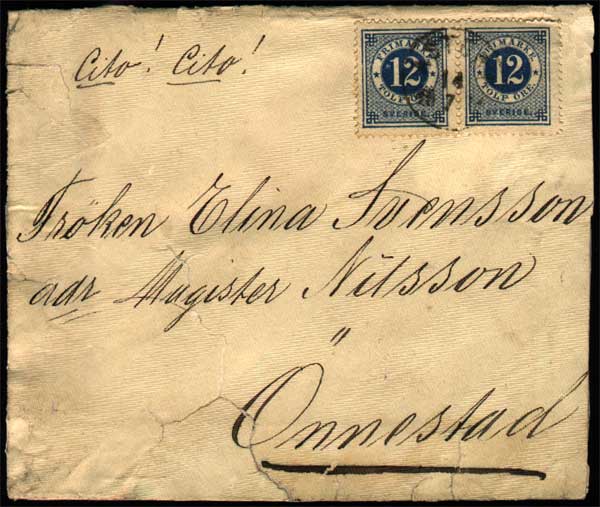 Cito! Cito!
FRIMÄRKE FRIMÄRKE
12 12
TOLF TOLF ÖRE
SVERIGE SVERIGE
14
7
Fröken Elina Svensson
adr Magister Nilsson
Önnestad